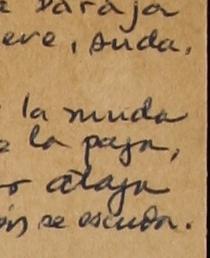 baraja
eve, suda,
la muda
la paja,
ataja
ón se escuda.